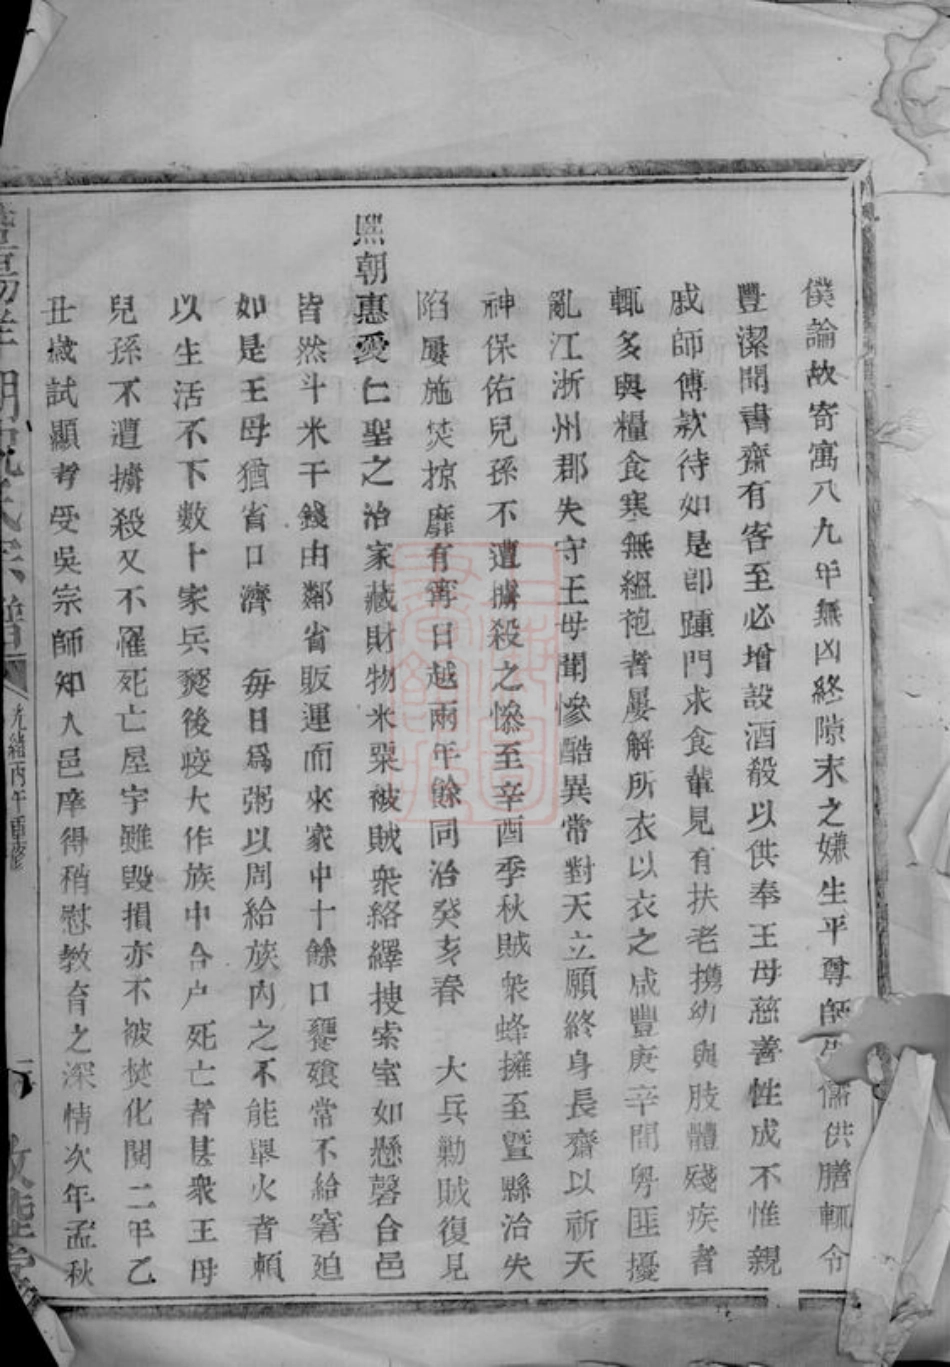 僕論故寄寓八九年無凶終隙末之嫌生平尊師儒供膳輒令
豐潔聞書齋有客至必增設酒殽以供奉王母慈善性成不惟親
戚師傅欵待如是卽踵門求食輩見有扶老攜幼與肢體殘疾者
輒多與糧食寒無縕袍者屢解所衣以衣之咸豐庚辛間粵匪擾
亂江浙州郡失守王母聞慘酷異常對天立願終身長齋以祈天
神保佑兒孫不遭擄殺之慘至辛酉季秋賊衆蜂擁至暨縣治失
陷屢施焚掠靡有寗日越兩年餘同治癸亥春 大兵勦賊復見
熙朝惠愛仁聖之治家藏財物米粟被賊衆絡繹搜索室如懸磬合邑
皆然斗米千錢由鄰省販運而來家中十餘口饔飧常不給窘廹
如是王母猶省口濟 每日爲粥以周給族內之不能舉火者賴
以生活不下數十家兵燹後疫大作族中合户死亡者甚衆王母
兒孫不遭擄殺又不罹死亡屋宇雖毀損亦不被焚化閱二年乙
丑歲試顯考受吳宗師知入邑庠得稍慰敎育之深情次年孟秋
宗譜
光緒丙午重修